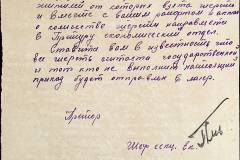 жителей от которых взята шерсть
и вместе с вашим рапортом и актом
о количестве шерсти направлете
в Претуру економический отдел.
Ставитя вам в известность что
вся шерсть считаетса государственной
и тот кто не выполнит настоящий
приказ будет отправлен в лагер.
Претор
Шеф секц. эк.